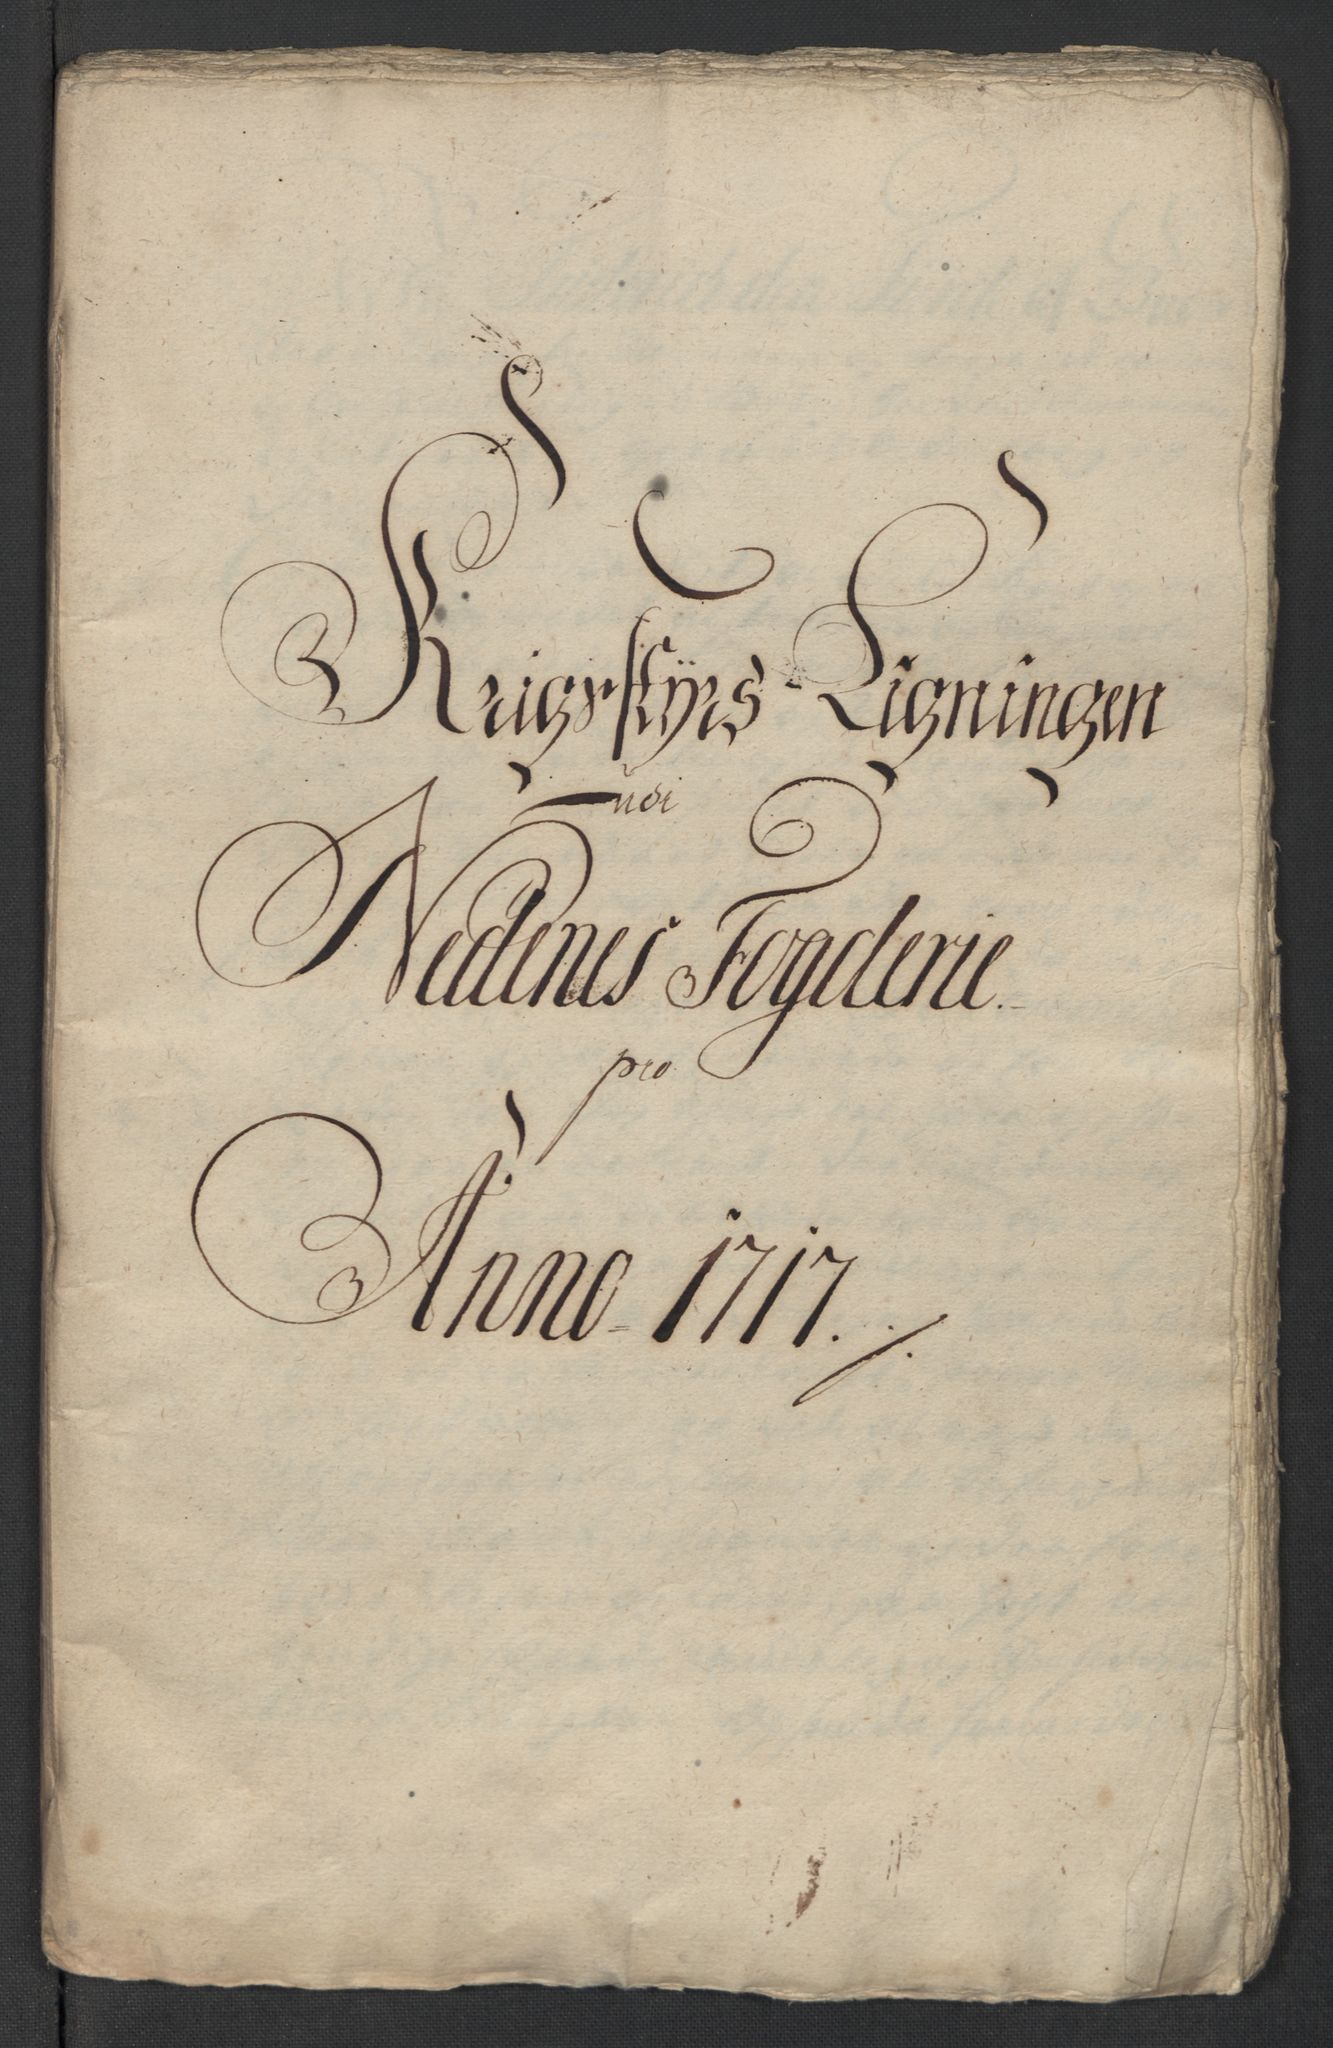 Krigsstÿrs Ligningen
udi
Nedenes Fogderie.
pro
Anno 1717.